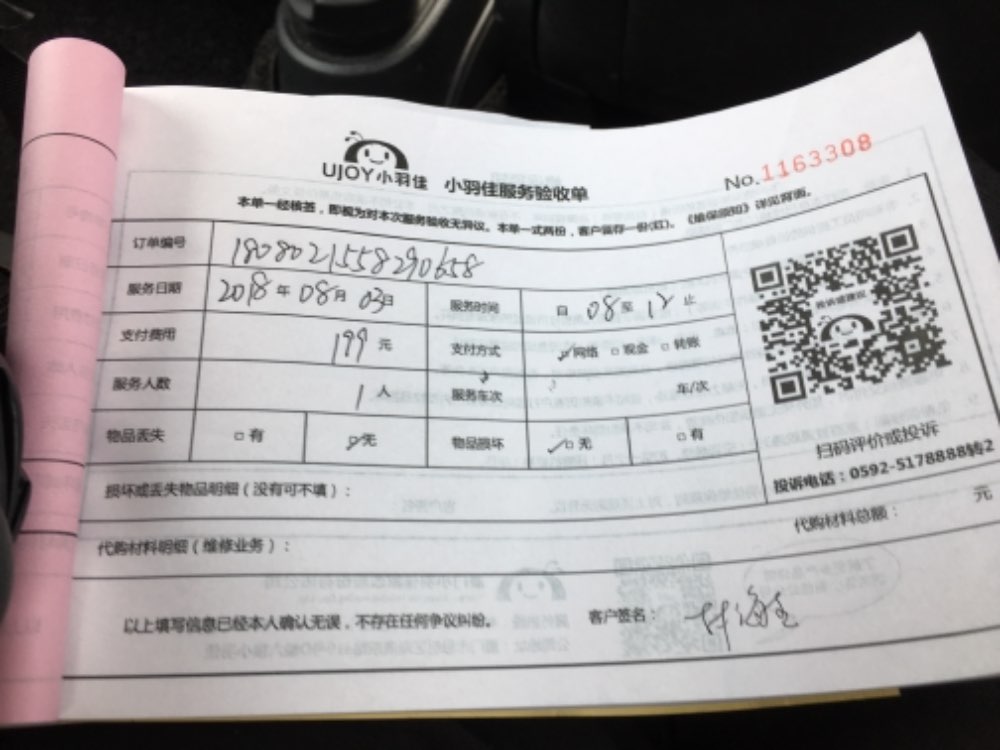 UJOY小羽佳 小羽佳服务验收单
No.1163308
本单一经核签，即视为对本次服务验收无异议。本单一式两份，客户留存一份(红)。《维保须知》详见背面。
订单编号 1808021558290658
服务日期 2018年08月03日 服务时间 自08至12止
支付费用 199元 支付方式 网络 □现金 □转账
服务人数 1人 服务车次 车/次
物品丢失 □有 无 物品损坏 □无 □有
扫码评价或投诉
投诉电话：0592-5178888转2
损坏或丢失物品明细（没有可不填）：
代购材料明细（维修业务）： 代购材料总额： 元
以上填写信息已经本人确认无误，不存在任何争议纠纷。 客户签名：